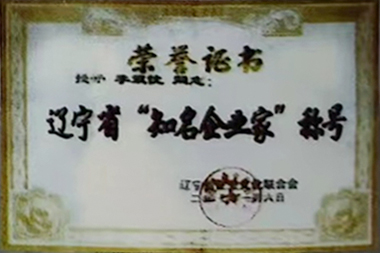 荣誉证书
授予 李 同志：
辽宁省“知名企业家”称号
辽宁 联合会
二 月六日